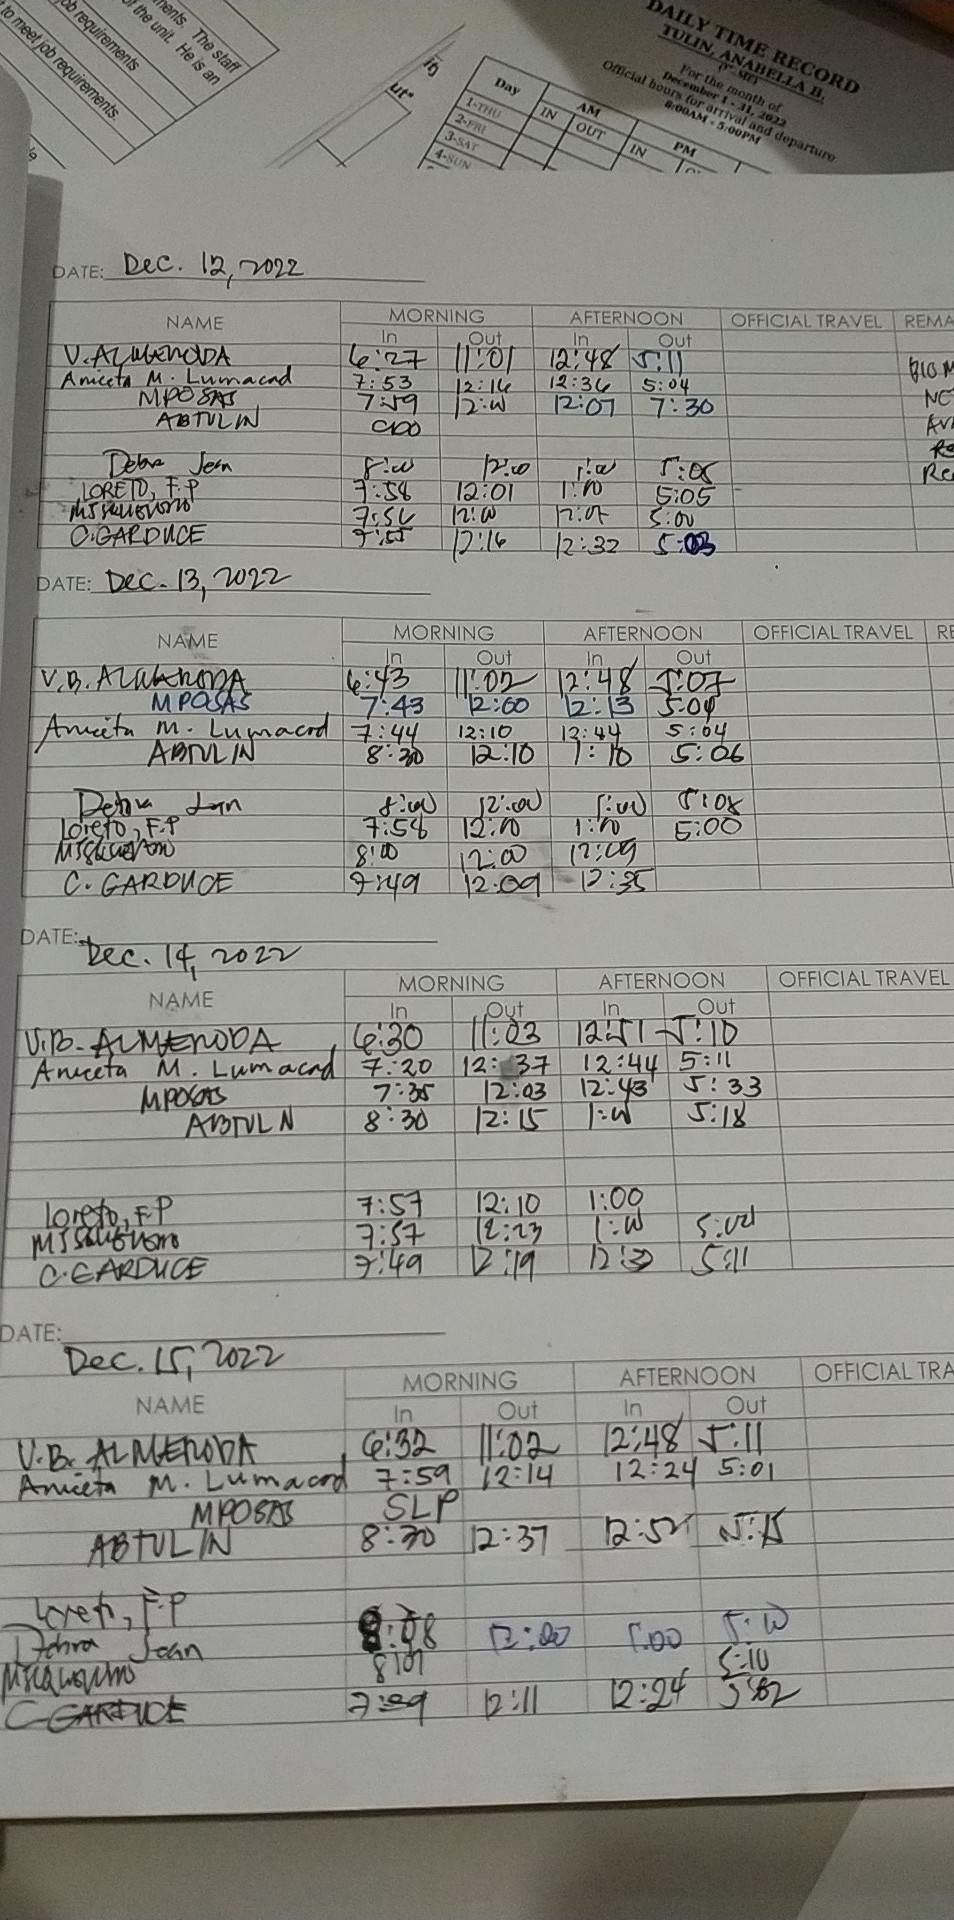 ments. The staff
of the unit. He is an
ob requirements
to meet job requirements.
DAILY TIME RECORD
TULIN, ANABELLA B.
For the month of
December 1 - 31, 2022
Official hours for arrival and departure
8:00AM - 5:00PM
Day AM PM
IN OUT IN
1-THU
2-FRI
3-SAT
4-SUN
DATE: Dec. 12, 2022
NAME MORNING AFTERNOON OFFICIAL TRAVEL REMA
In Out In Out
V. ALMENODA 6:27 11:01 12:48 5:11
Aniceta M. Lumacad 7:53 12:16 12:36 5:04
MPOSAS 7:59 12:00 12:07 7:30
ABTULIN CDO
Debra Jean 8:00 12:00 1:00 5:05
LORETO, F.P 7:58 12:01 1:00 5:05
12:00 5:00
C. GARDUCE 7:55 12:16 12:32 5:03
DATE: Dec. 13, 2022
NAME MORNING AFTERNOON OFFICIAL TRAVEL RE
In Out In Out
V.B. ALMENODA 6:43 11:02 12:48 5:07
MPOSAS 7:43 12:00 12:13 5:04
Aniceta M. Lumacad 7:44 12:10 12:44 5:04
ABTULIN 8:30 12:10 1:10 5:06
Debra Jean 8:00 12:00 1:00 5:08
Loreto, F.P 7:58 12:00 1:00 5:00
8:00 12:00 12:09
C. GARDUCE 7:49 12:09 12:35
DATE: Dec. 14, 2022
NAME MORNING AFTERNOON OFFICIAL TRAVEL
In Out In Out
V.B. ALMENODA 6:30 11:03 12:51 5:10
Aniceta M. Lumacad 7:20 12:37 12:44 5:11
MPOSAS 7:35 12:03 12:43 5:33
ABTULIN 8:30 12:15 1:00 5:18
Loreto, F.P 7:57 12:10 1:00
7:57 12:23 1:00
C. GARDUCE 7:49 12:19 5:11
DATE: Dec. 15, 2022
NAME MORNING AFTERNOON OFFICIAL TRA
In Out In Out
V.B. ALMENODA 6:32 11:02 12:48 5:11
Aniceta M. Lumacad 7:59 12:14 12:24 5:01
MPOSAS SLP
ABTULIN 8:30 12:37 12:52 5:15
Loreto, F.P
Debra Jean 12:00 1:00 5:00
8:01 5:10
C GARDUCE 7:39 12:11 12:24 5:02